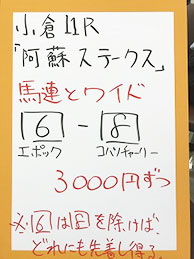 小倉11R
「阿蘇ステークス」
馬連とワイド
6 - 8
エポック コパノチャーリー
3000円ずつ
※6は8を除けば、
どれにも先着し得る。